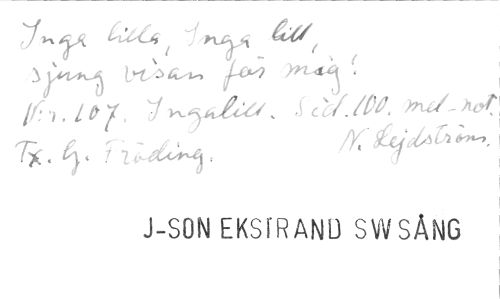 Inga lilla, Inga lill,
sjung visan för mig!
N:r. 107. Ingalill. Sid. 100. med not.
Tx. G. Fröding. N. Lejdström.
J-SON EKSTRAND SWSÅNG